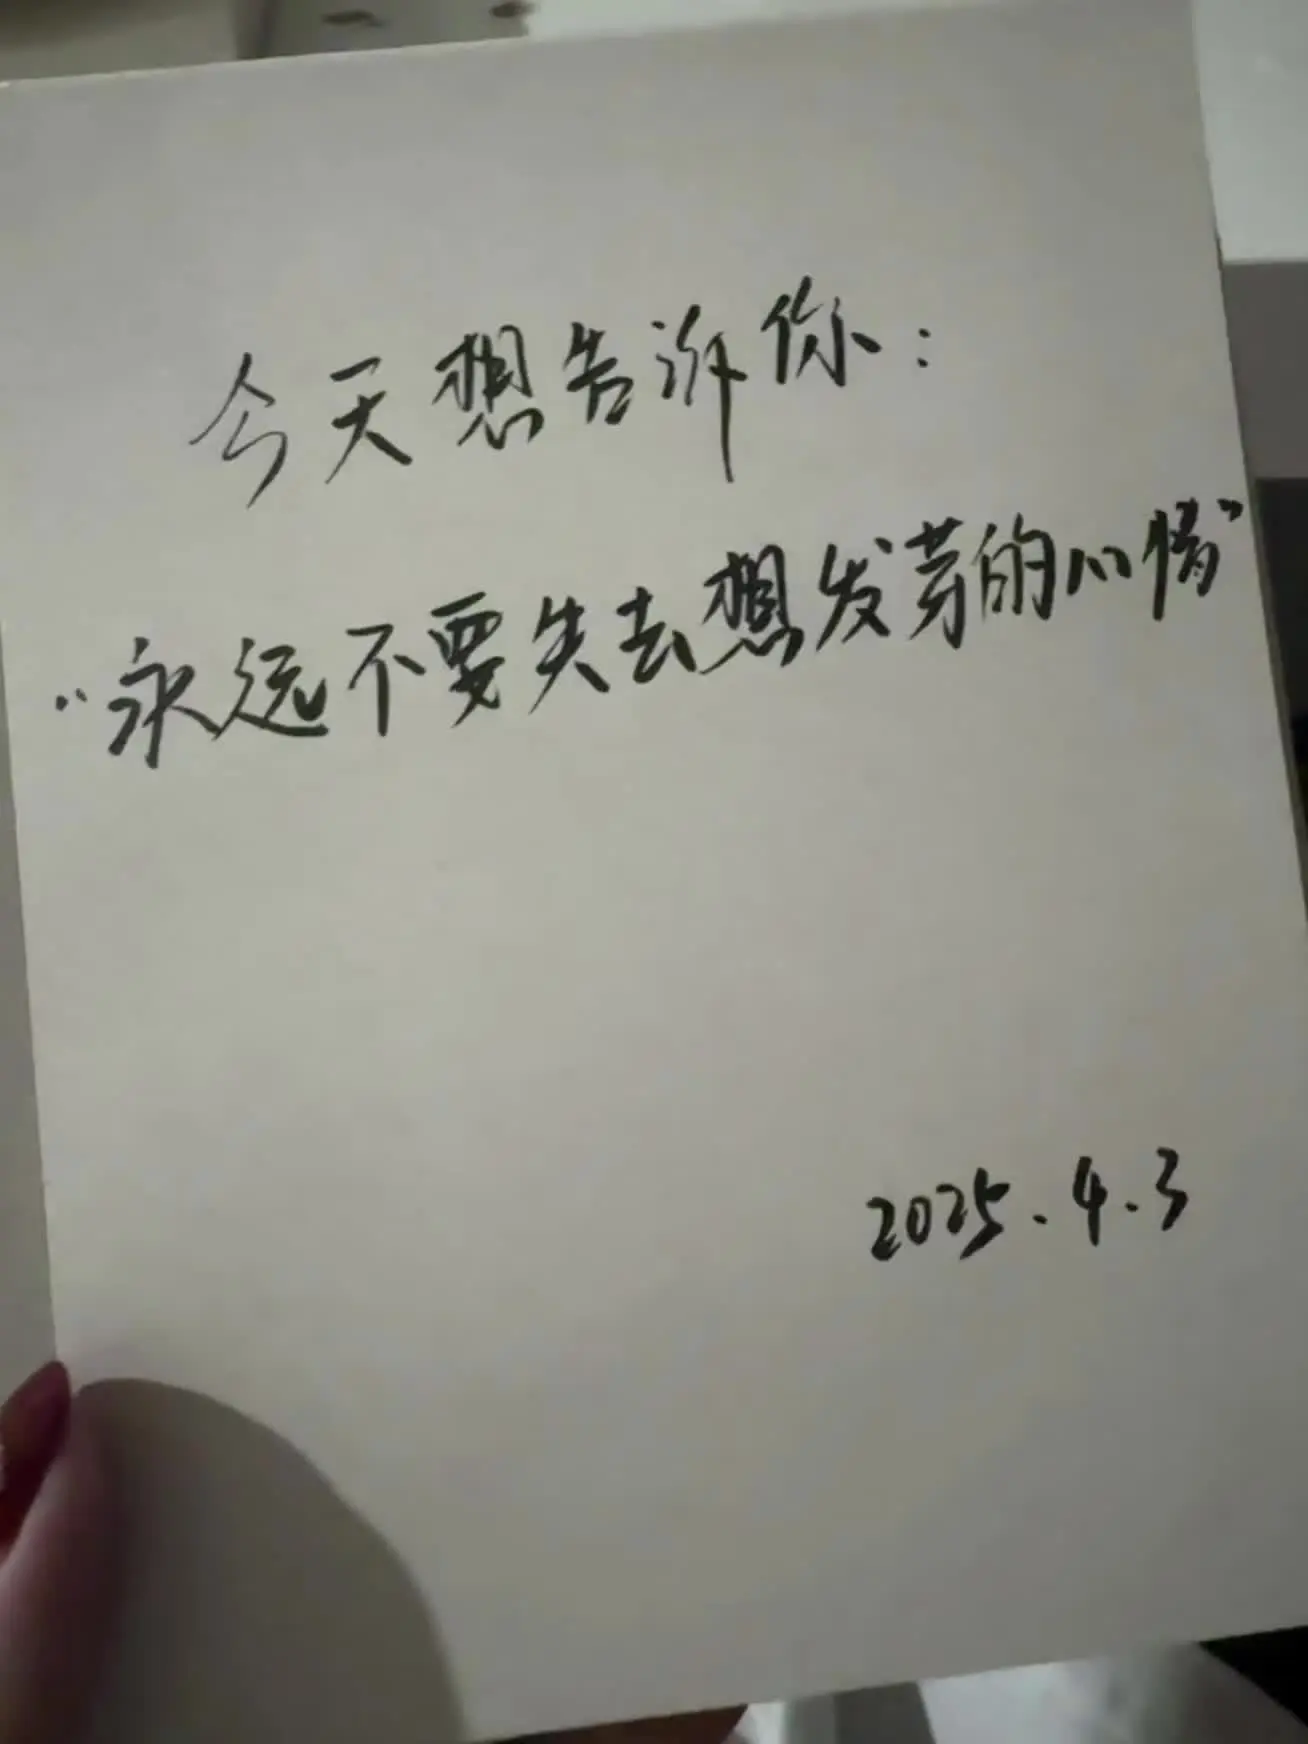 今天想告诉你：
“永远不要失去想发芽的心情”
2025.4.3